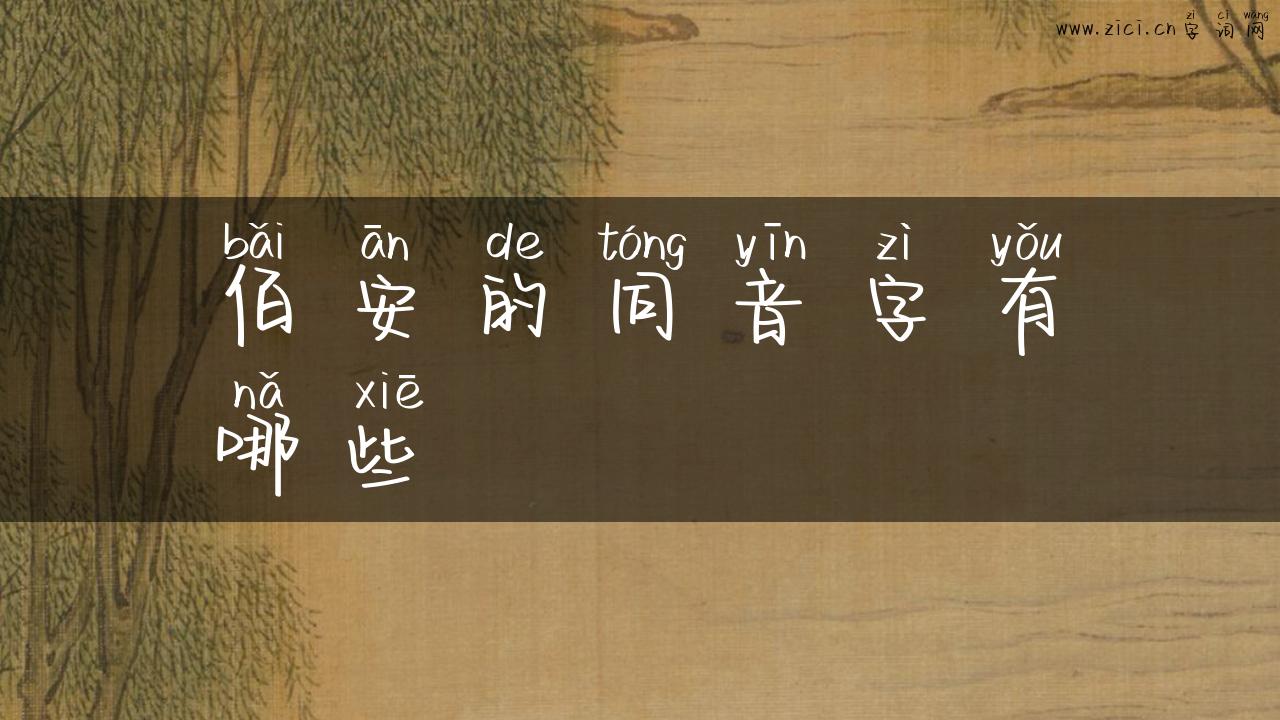 zì cí wǎng
www.zici.cn 字词网
bǎi ān de tóng yīn zì yǒu
佰安的同音字有
nǎ xiē
哪些